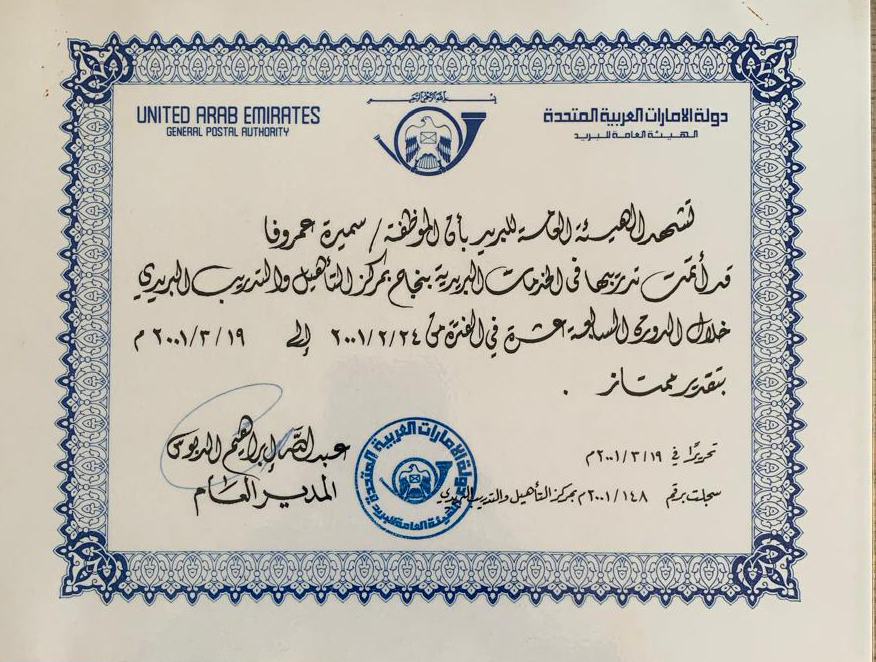 UNITED ARAB EMIRATES
GENERAL POSTAL AUTHORITY
دولة الامارات العربية المتحدة
الهيئة العامة للبريد
تشهد الهيئة العامة للبريد بأن الموظفة / سميرة عمروفا
قد أتمت تدريبها في الخدمات البريدية بنجاح بمركز التأهيل والتدريب البريدي
خلال الدورة السابعة عشرة في الفترة من ٢٠٠١/٢/٢٤ إلى ٢٠٠١/٣/١٩ م
بتقدير ممتاز .
تحريرًا في ٢٠٠١/٣/١٩م
سجلت برقم ٢٠٠١/١٤٨م بمركز التأهيل والتدريب البريدي
عبد الله إبراهيم الدبوس
المدير العام
دولة الامارات العربية المتحدة
الهيئة العامة للبريد